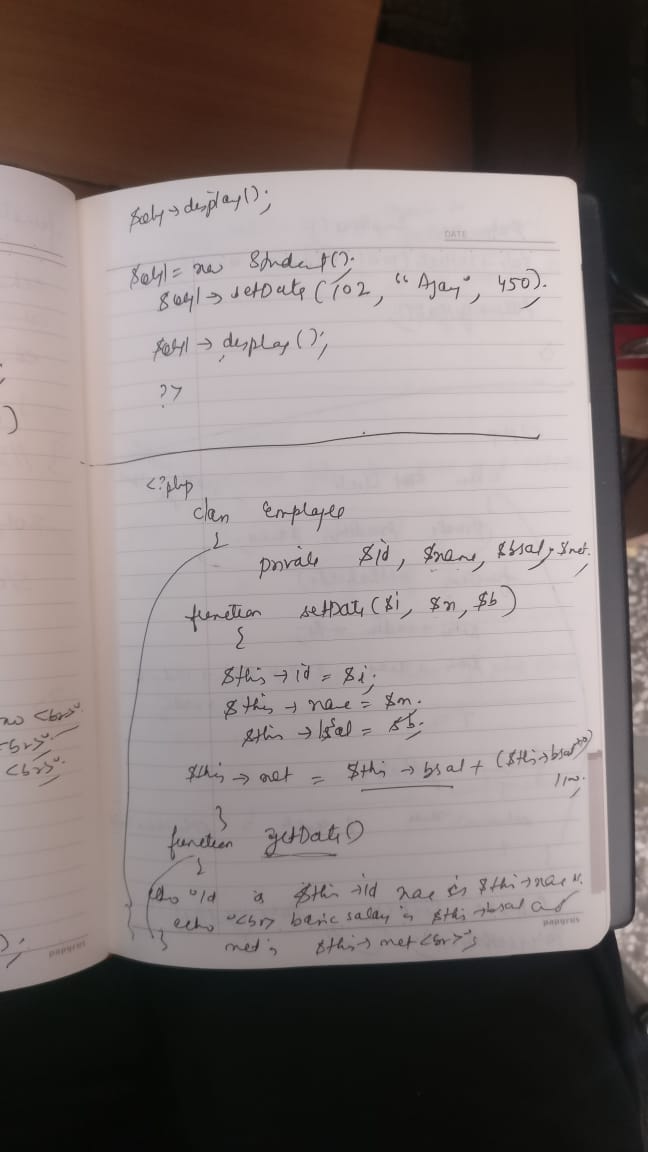 $obj→display();
DATE
$obj1 = new Student();
$obj1→setData(102, "Ajay", 450);
$obj1→display();
?>
<?php
class employee
{
private $id, $name, $bsal, $net;
function setData($i, $n, $b)
{
$this→id = $i;
$this→name = $n;
$this→bsal = $b;
$this→net = $this→bsal + ($this→bsal*10)
/100;
}
function getData()
{
echo "Id is $this→id name is $this→name";
echo "<br> basic salary is $this→bsal and
net is $this→net<br>";
}
}
no <br>";
<br>";
<br>";
);
papyrus
papyrus